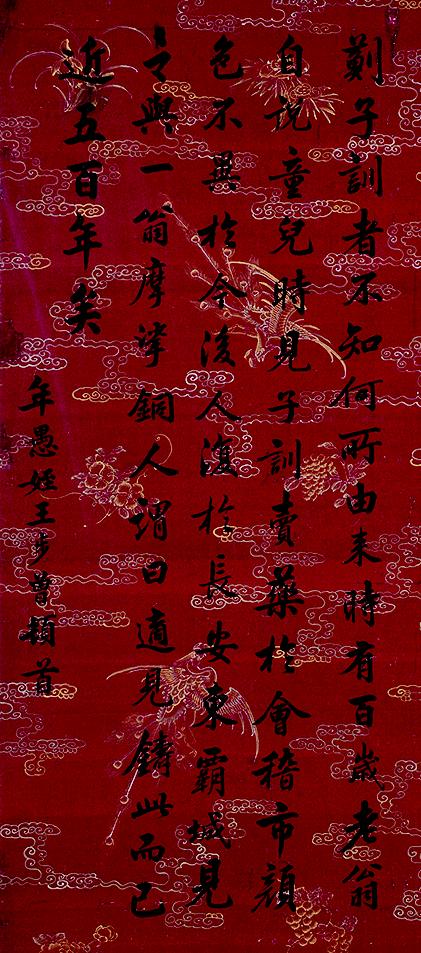 薊子訓者不知何所由来時有百歲老翁
自說童兒時見子訓賣藥於會稽市顏
色不異於今後人復於長安東霸城見
之與一翁摩挲銅人謂曰適見鑄此而已
近五百年矣
年愚姪王步曾頓首